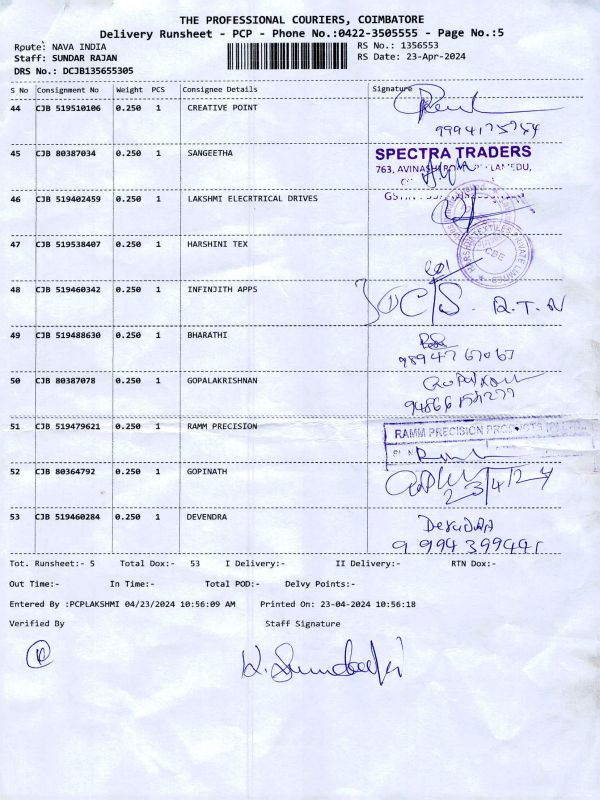 THE PROFESSIONAL COURIERS, COIMBATORE
Delivery Runsheet - PCP - Phone No.:0422-3505555 - Page No.:5
Route: NAVA INDIA
RS No.: 1356553
Staff: SUNDAR RAJAN
RS Date: 23-Apr-2024
DRS No.: DCJB135655305
S No Consignment No Weight PCS Consignee Details Signature
44 CJB 519510106 0.250 1 CREATIVE POINT
45 CJB 80387034 0.250 1 SANGEETHA
SPECTRA TRADERS
46 CJB 519402459 0.250 1 LAKSHMI ELECRTRICAL DRIVES
47 CJB 519538407 0.250 1 HARSHINI TEX
CBE
48 CJB 519460342 0.250 1 INFINJITH APPS
49 CJB 519488630 0.250 1 BHARATHI
50 CJB 80387078 0.250 1 GOPALAKRISHNAN
51 CJB 519479621 0.250 1 RAMM PRECISION
RAMM PRECISION
52 CJB 80364792 0.250 1 GOPINATH
23/4/24
53 CJB 519460284 0.250 1 DEVENDRA
9994399441
Tot. Runsheet:- 5 Total Dox:- 53 I Delivery:- II Delivery:- RTN Dox:-
Out Time:- In Time:- Total POD:- Delvy Points:-
Entered By :PCPLAKSHMI 04/23/2024 10:56:09 AM Printed On: 23-04-2024 10:56:18
Verified By Staff Signature